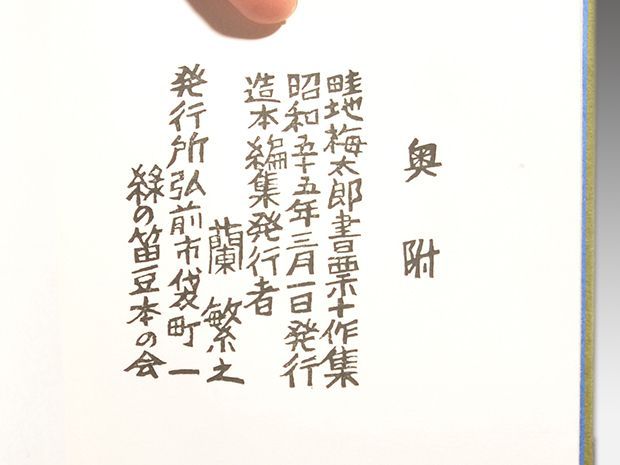 奥附
畦地梅太郎書票十作集
昭和五十五年三月一日発行
造本編集発行者
蘭繁之
発行所弘前市袋町一
緑の笛豆本の会